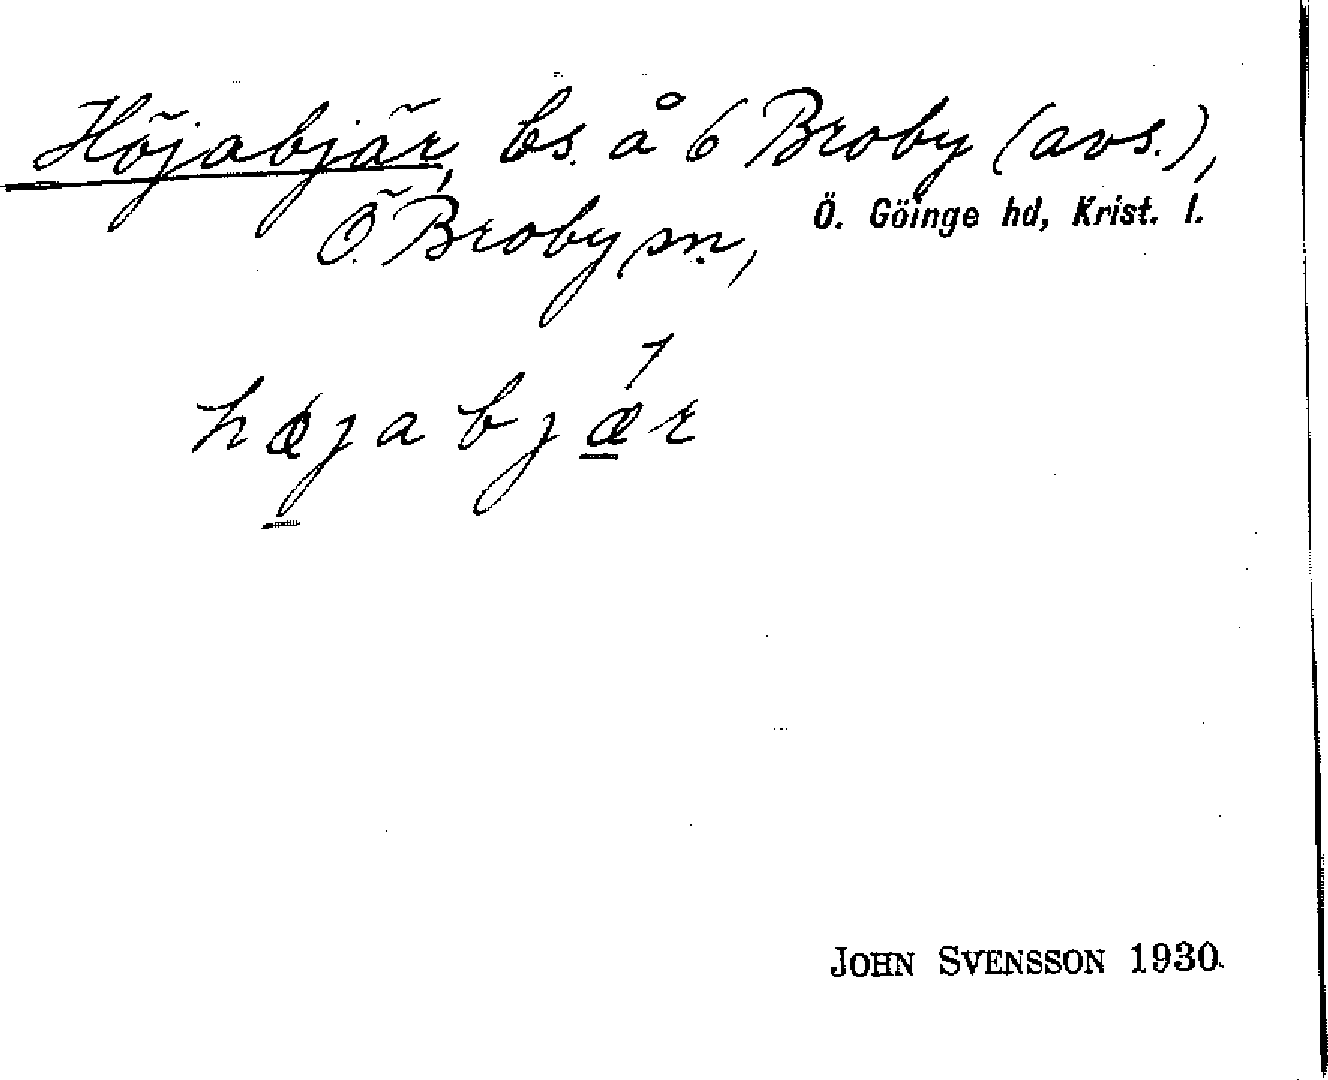 Höjabjär, bs. å 6 Broby (avs.),
Ö. Broby sn, Ö. Göinge hd, Krist. l.
hæjabjær
JOHN SVENSSON 1930.